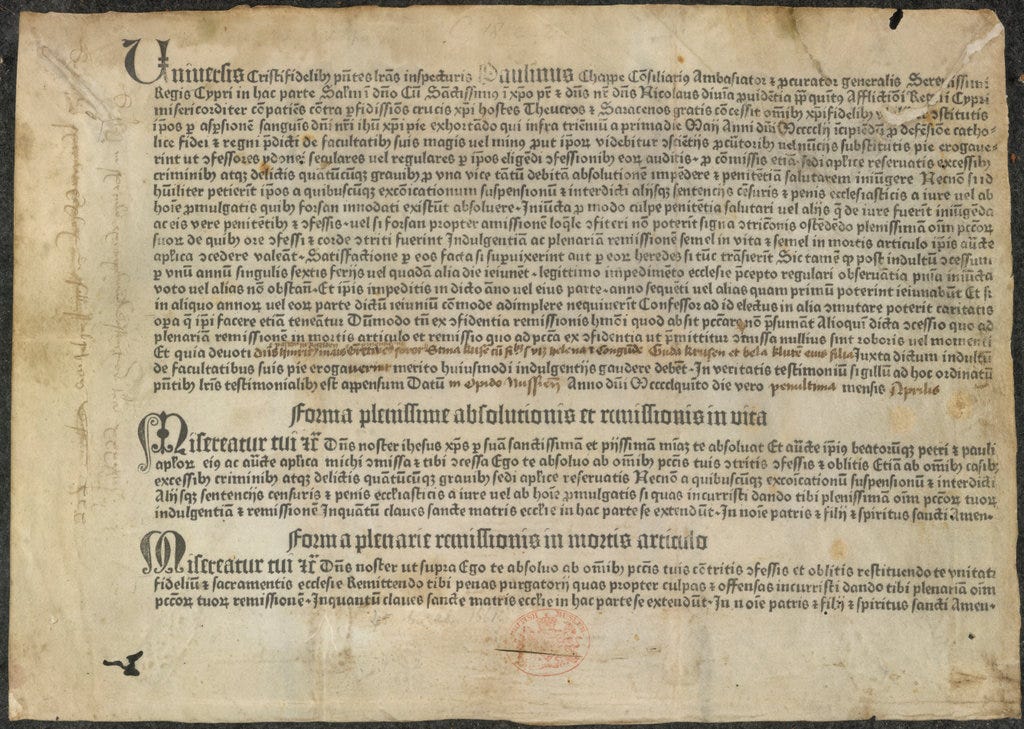 Uniuersis Cristifidelibꝫ pñtes lrãs inspecturis Paulinus Chappe Cõsiliariꝰ Ambasiator ⁊ ꝓcurator generalis Sere issimi
Regis Cypri in hac parte Saltm̃ i dño Cũ Sãctissimꝰ i xp̃o pr̃ ⁊ dñs nr̃ dñs Nicolaus diuĩa ꝓuidẽtia pp̃ quintꝰ Afflictiõi Regni Cypri
misericorditer cõpatiẽs cõtra ꝑfidissiõs crucis xp̃i hostes Theucros ⁊ Saracenos gratis cõcessit oĩbꝫ xp̃ifidelibꝫ ↄstitutis
ip̃os ꝑ asꝑsionẽ sanguĩs dñi nr̃i ihũ xp̃i pie exhortãdo qui infra trienniũ a prima die Maij Anni dñi Mcccclij ĩcipiendũ ꝓ defẽsiõe catho-
lice fidei ⁊ regni p̃dicti de facultatibꝫ suis magis vel minꝰ ꝓut ip̃orꝝ videbitur ↄsciẽtijs ꝓcũtoribꝫ vel nũcijs substitutis pie erogaue-
rint ut ↄfessores ydonei seculares vel regulares ꝑ ip̃os eligẽdi ↄfessionibꝫ eorꝝ auditis ꝓ cõmissis etiã sedi apl̃ice reseruatis excessibꝫ
criminibꝫ atqꝫ delictis quãtũcũqꝫ grauibꝫ ꝓ vna vice tãtũ debitã absolutionẽ impẽdere ⁊ penitẽtiã salutarem iniũgere Necnõ si id
hũiliter petierint ip̃os a quibuscũqꝫ excõicationum suspensionũ ⁊ interdicti alijsqꝫ sentencijs cẽsuris ⁊ penis ecclesiasticis a iure vel ab
hoĩe ꝓmulgatis quibꝫ forsan innodati existũt absoluere · Iniũcta ꝓ modo culpe penitẽtia salutari vel alijs q̃ de iure fuerĩt iniũgẽda
ac eis vere penitẽtibꝫ ⁊ ↄfessis · vel si forsan propter amissionẽ loq̃le ↄfiteri nõ poterĩt signa ↄtricõis ostẽdẽdo plenissimã oĩm pccõrꝝ
suorꝝ de quibꝫ ore ↄfessi ⁊ corde ↄtriti fuerint Indulgentiã ac plenariam remissionẽ semel in vita ⁊ semel in mortis articulo ip̃is auc̃te
apl̃ica ↄcedere valeãt · Satisfactione ꝑ eos facta si supuixerint aut ꝑ eorꝝ heredes si tũc trãsierĩt Sic tamẽ qꝫ post indultũ ↄcessum
ꝑ vnũ annũ singulis sextis ferijs vel quadã alia die ieiunẽt · legittimo impedimẽto ecclesie p̃cepto regulari obseruãtia pñia iniũcta
voto vel alias nõ obstañ · Et ip̃is impeditis in dicto ãno vel eius parte · anno seq̃ẽti vel alias quam primũ poterint ieiunabũt Et si
in aliquo annorꝝ vel eorꝝ parte dictũ ieiuniũ cõmode adimplere nequiuerĩt Confessor ad id electus in alia ↄmutare poterit caritatis
oꝑa q̃ ip̃i facere etiã teneãtur Dũmodo tñ ex ↄfidentia remissionis hmõi quod absit peccare nõ p̃sumãt Alioqui dicta ↄcessio quo ad
plenariam remissionẽ in mortis articulo et remissio quo ad pccãta ex ↄfidentia ut p̃mittitur ↄmissa nullius sint roboris vel momenti
Et quia deuoti dñs hinricꝰ Greta Stina kuse cũ Guda krusen et hela kluke eius filia Iuxta dictum indultũ
de facultatibus suis pie erogauerint merito huiusmodi indulgentijs gaudere debẽt · In veritatis testimoniũ sigillũ ad hoc ordinatũ
pñtibꝫ lrĩs testimonialibꝫ est appensum Datũ in Opido Nussien̄ Anno dñi Mccccl quĩto die vero penultima mensis Aprilis
Forma plenissime absolutionis et remissionis in vita
Misereatur tui ⁊c̃ Dñs noster ihesus xp̃s ꝑ suã sanctissimã et pijssimã miãꝫ te absoluat Et auc̃te ip̃iꝰ beatorũqꝫ petri ⁊ pauli
apl̃orꝝ eiꝰ ac auc̃te apl̃ica michi ↄmissa ⁊ tibi ↄcessa Ego te absoluo ab oĩbꝫ pccĩs tuis ↄtritis ↄfessis ⁊ oblitis Etiã ab oĩbꝫ casibꝫ
excessibꝫ criminibꝫ atqꝫ delictis quãtũcũqꝫ grauibꝫ sedi apl̃ice reseruatis Necnõ a quibuscũqꝫ excõicationũ suspensionũ ⁊ interdicti
Alijsqꝫ sentencijs censuris ⁊ penis eccl̃iasticis a iure vel ab hoĩe ꝓmulgatis si quas incurristi dando tibi plenissimã oĩm pccõrꝝ tuorꝝ
indulgentiã ⁊ remissionẽ Inquãtũ claues sancte matris eccl̃ie in hac parte se extendũt · In noĩe patris ⁊ filij ⁊ spiritus sancti Amen·
Forma plenarie remissionis in mortis articulo
Misereatur tui ⁊c̃ Dñs noster ut supra Ego te absoluo ab oĩbꝫ pccĩs tuis cõtritis ↄfessis et oblitis restituendo te vnitati
fideliũ ⁊ sacramentis ecclesie Remittendo tibi penas purgatorij quas propter culpas ⁊ offensas incurristi dando tibi plenariã oĩm
pccõrꝝ tuorꝝ remissionẽ · Inquantũ claues sancte matris eccl̃ie in hac parte se extendũt · In noĩe patris ⁊ filij ⁊ spiritus sancti Amen·